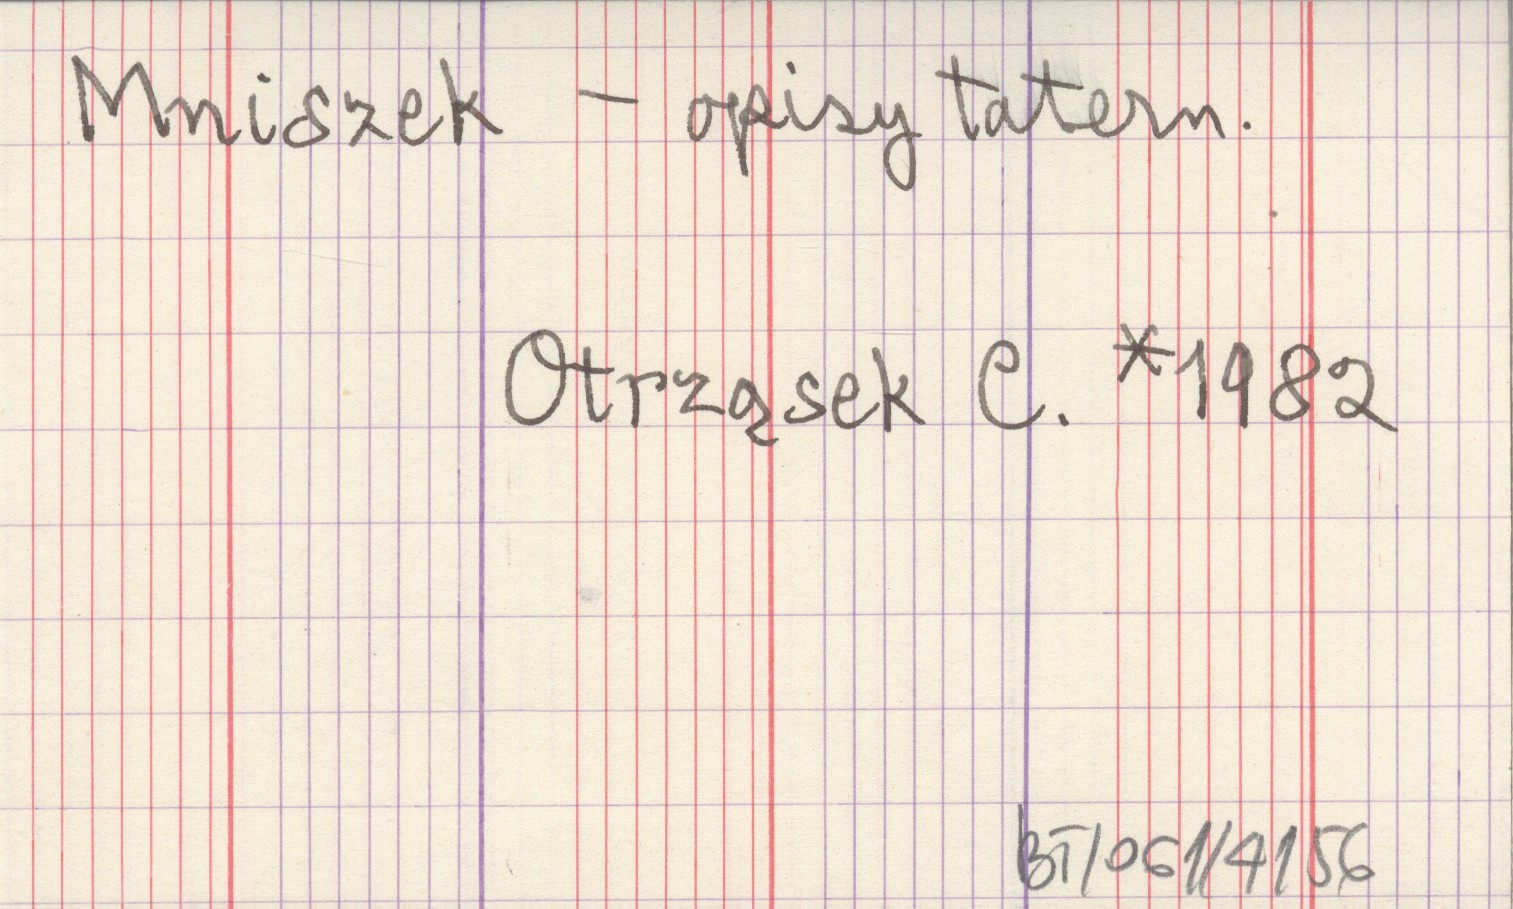 Mniszek - opisy tatern.
Otrząsek C. *1982
BT/061/4156